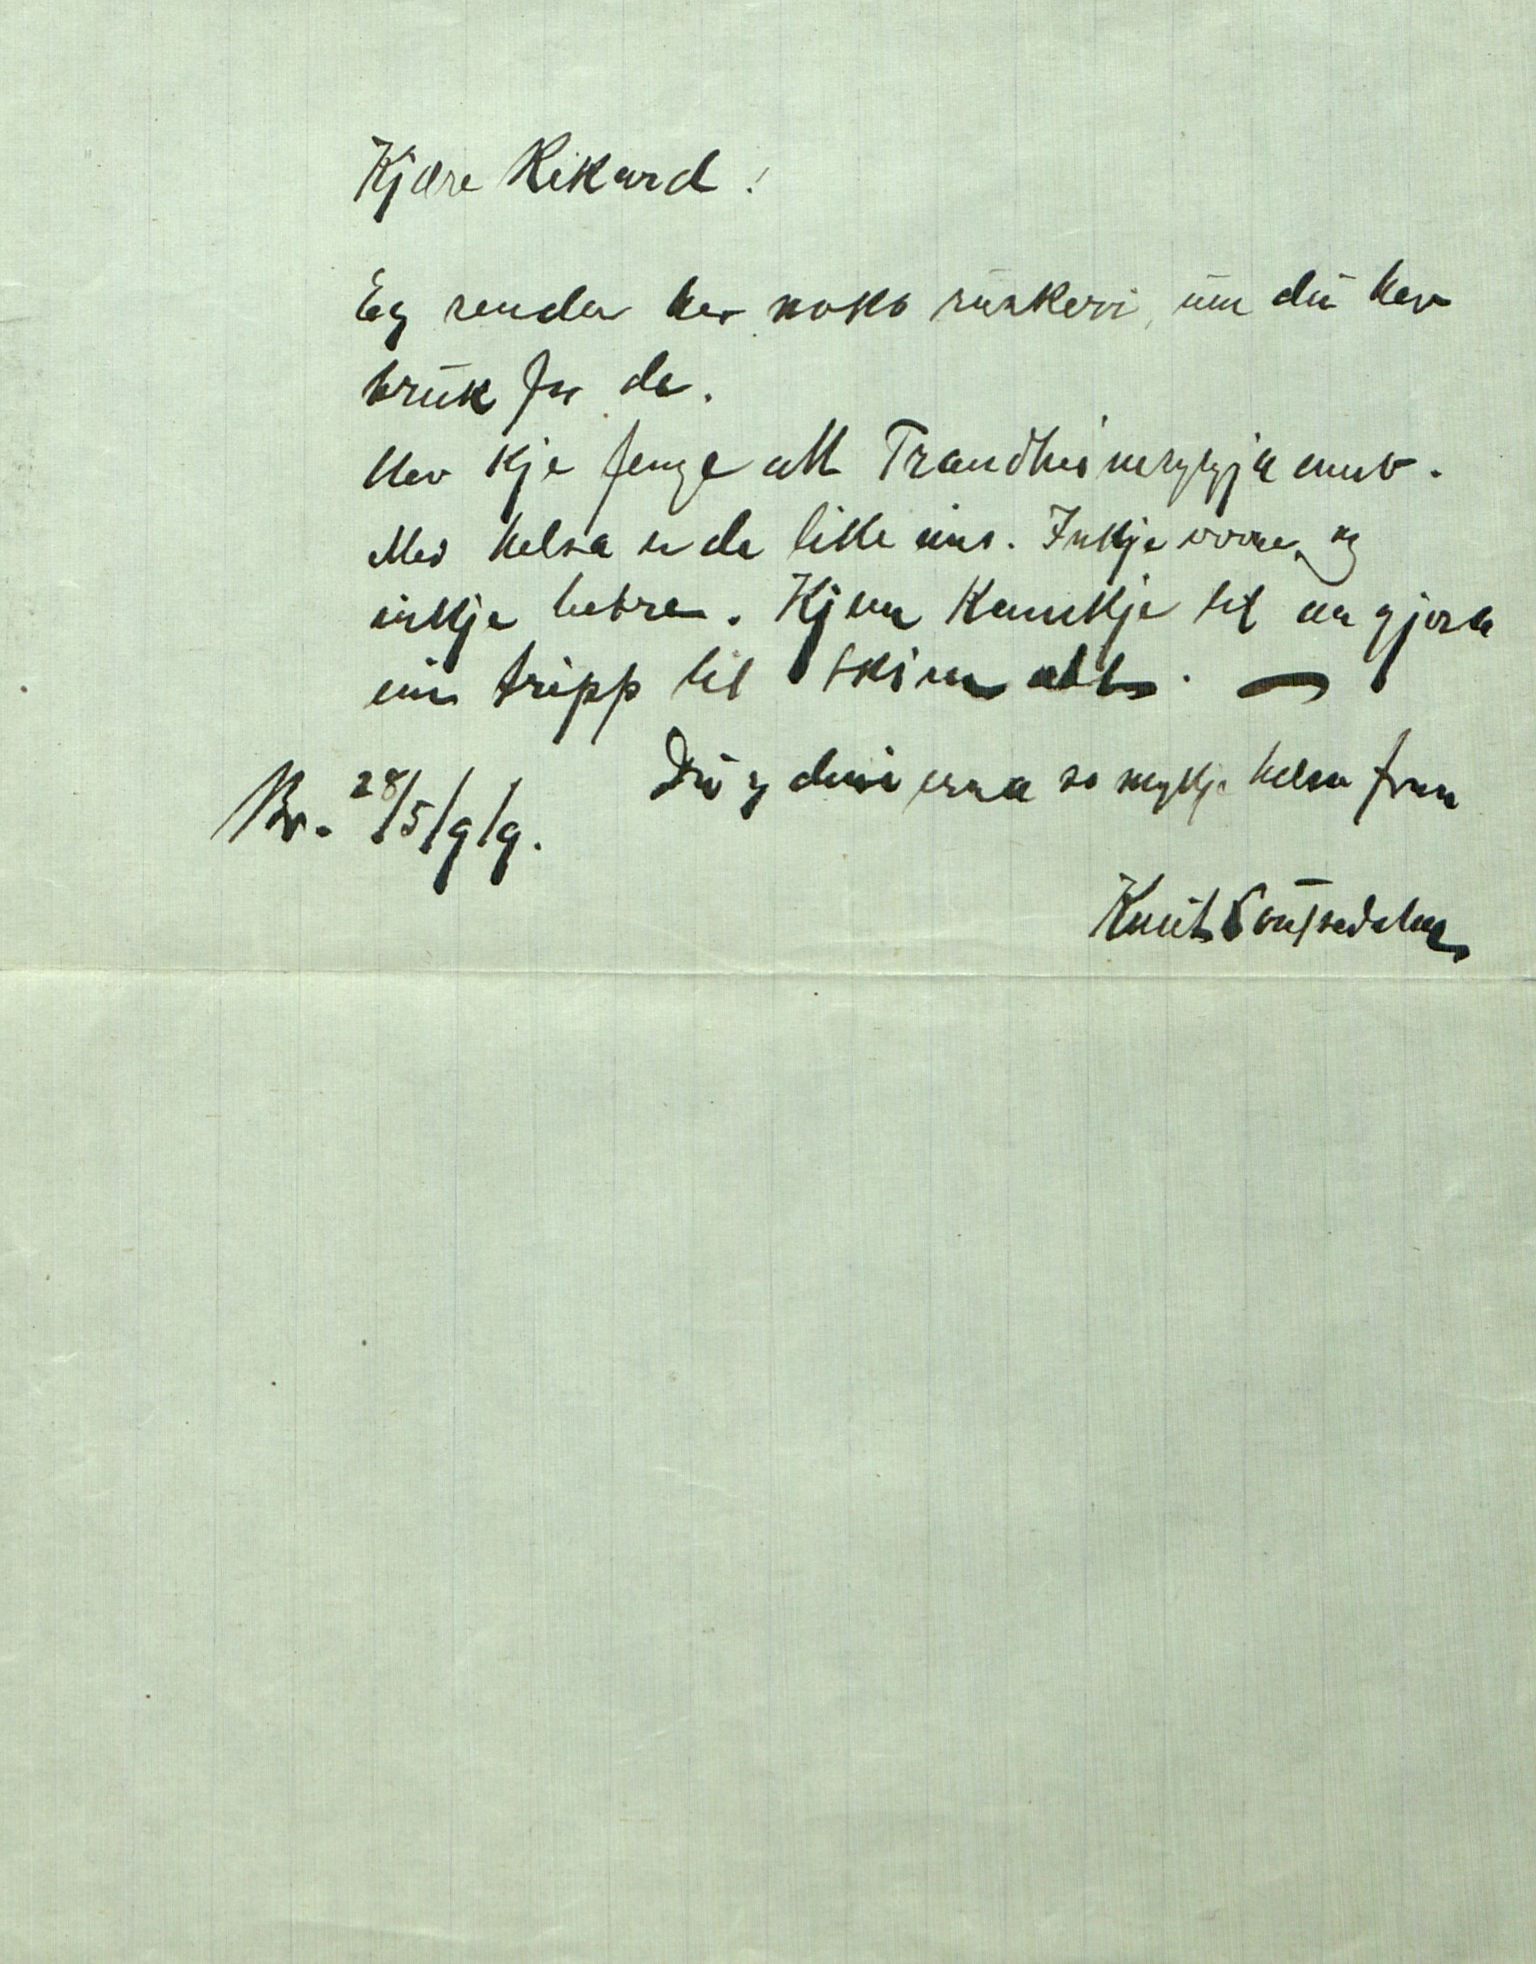 Kjære Rikard!
Eg sender her noko rüskeri, üm dü hev
brük for de.
Hev kje fenge att Trandheimsrygja enno.
Med helsa er de like eins. Inkje vorre, og
inkje betre. Kjem kannkje til aa gjera
ein tripp til Skien att.
Dü og dine vera so mykje helsa fraa
Br. 28/5/9/9.
Knüt